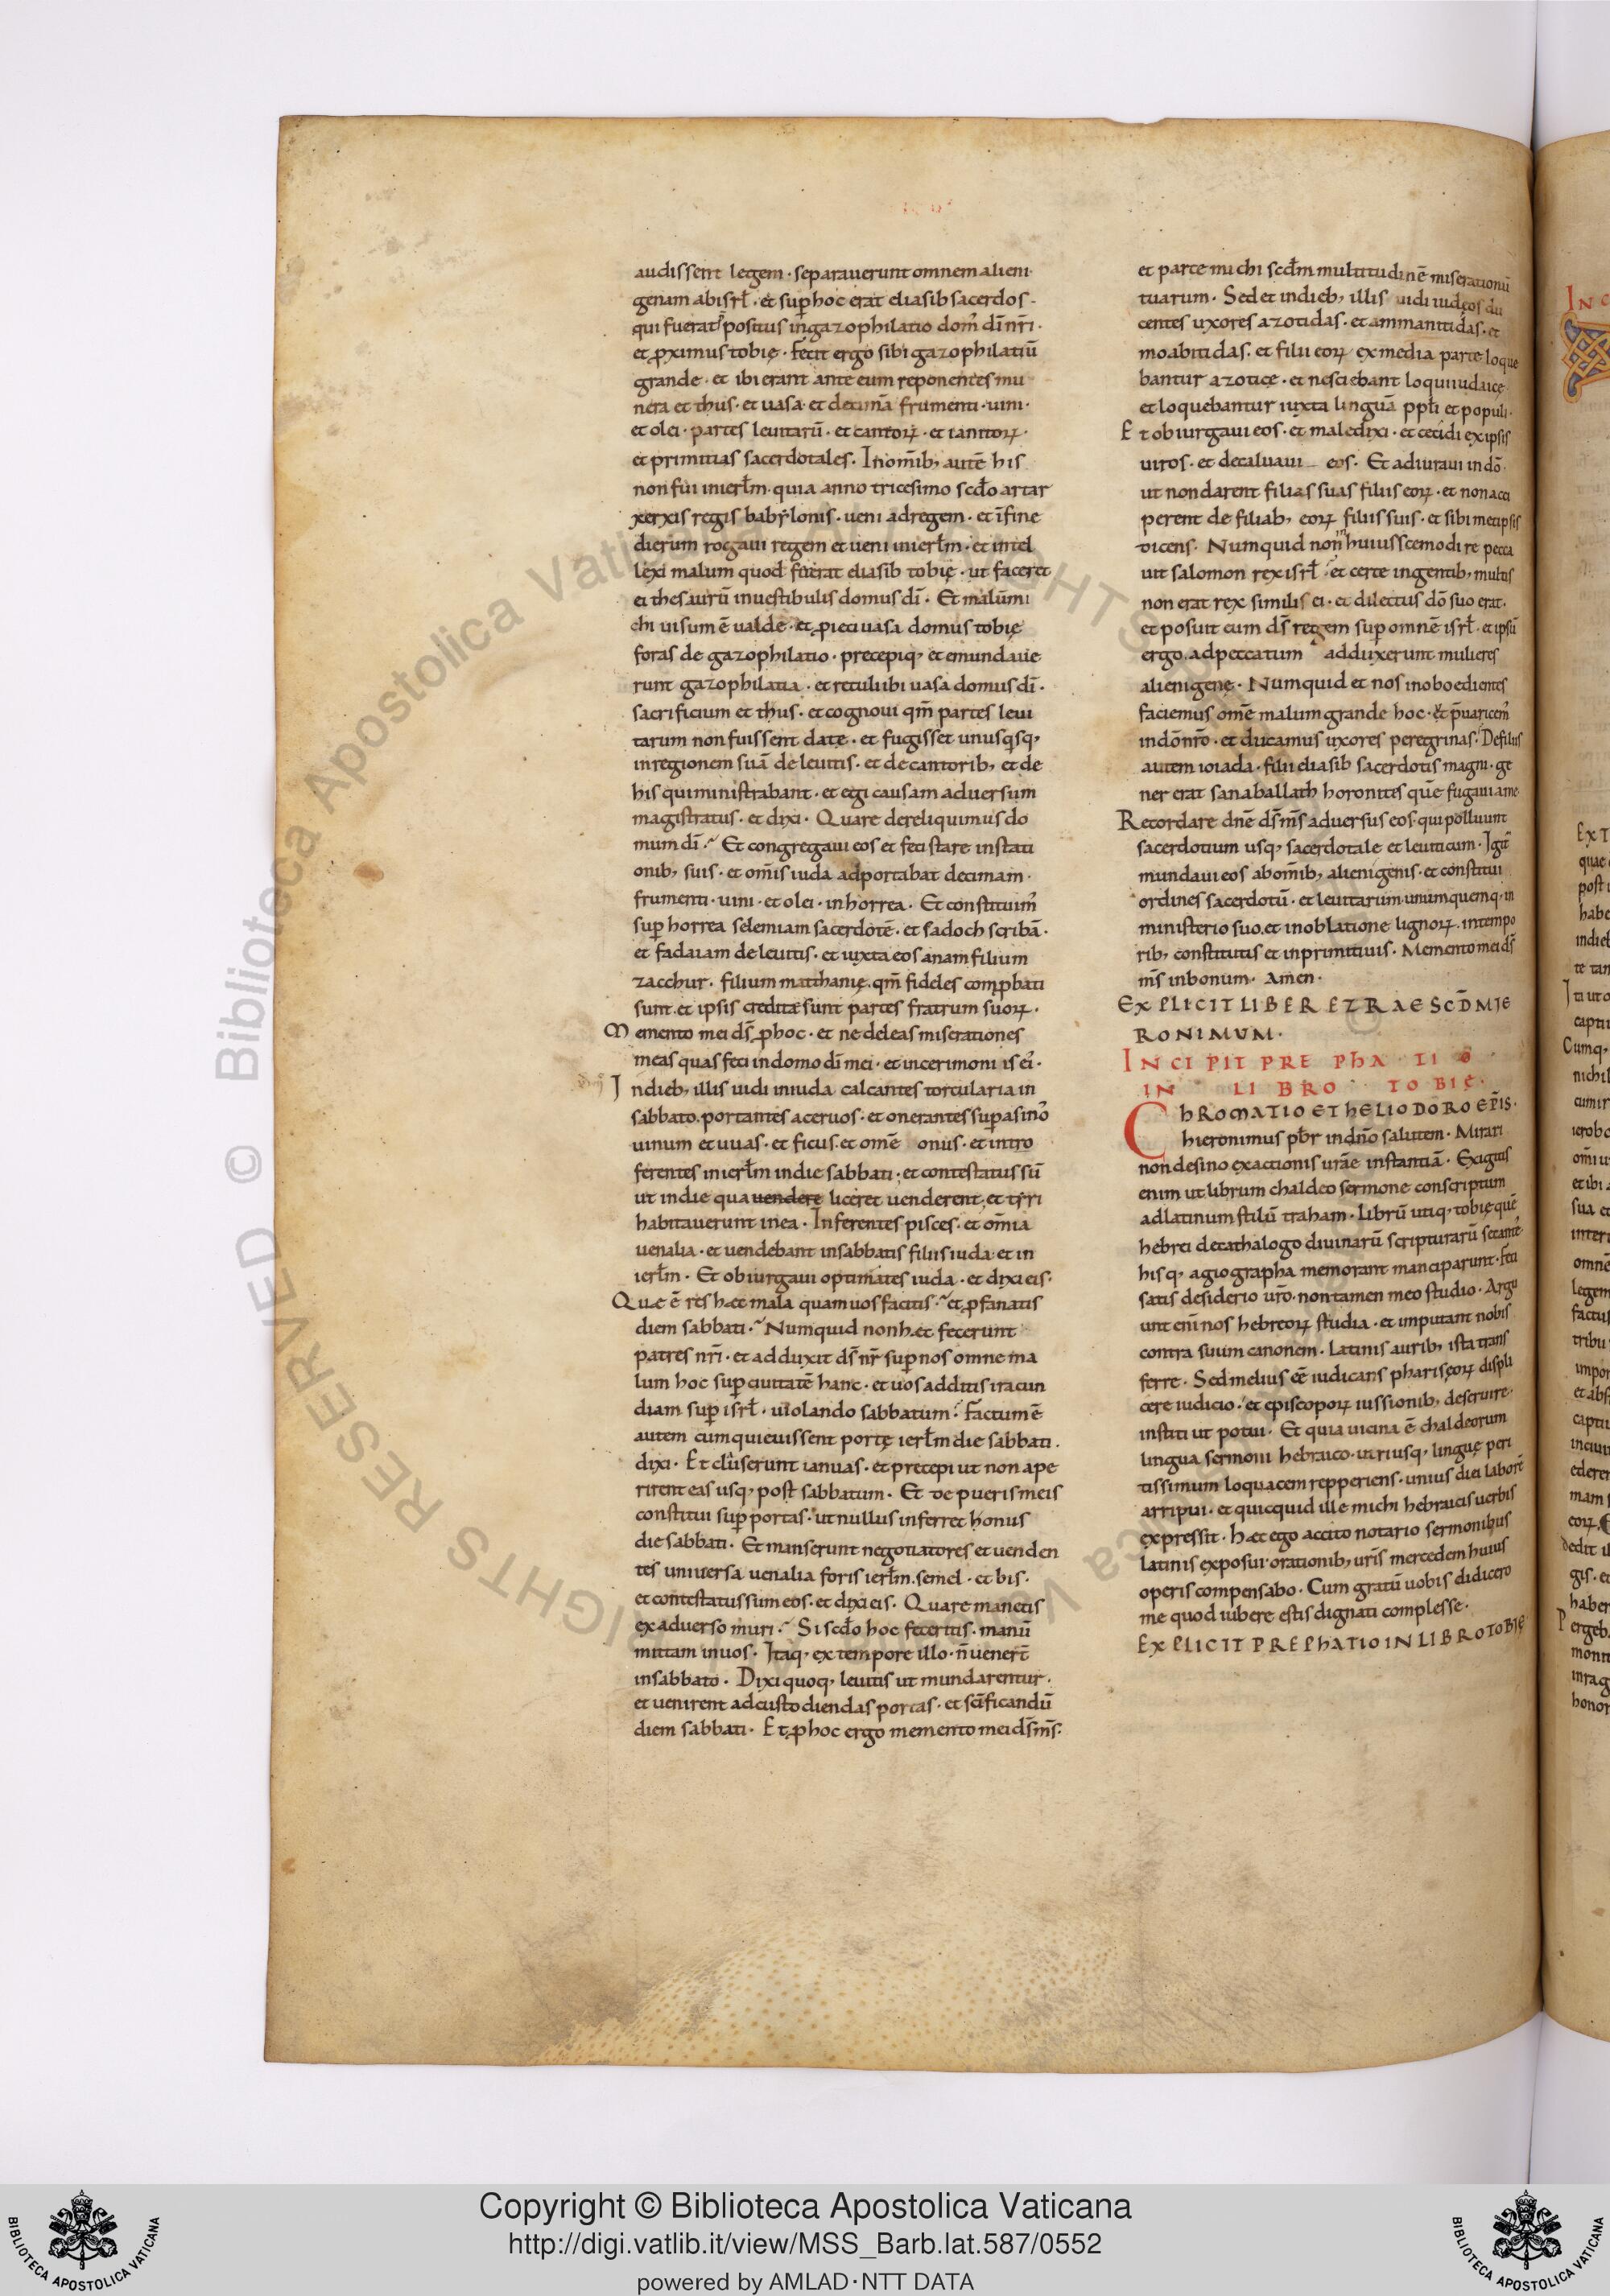 audissent legem · separauerunt omnem alieni
genam ab isrł · et sup̄ hoc erat eliasib sacerdos ·
qui fuerat p̄positus in gazophilatio dom' dī nr̄i ·
et ꝓximus tobię · fecit ergo sibi gazophilatiū
grande · et ibi erant ante eum reponentes mu
nera et thus · et uasa · et decimā frumenti · uini ·
et olei · partes leuitarū · et cantorꝝ · et ianitorꝝ ·
et primitias sacerdotales · In om̄ib; autē his
non fui in ierłm · quia anno tricesimo scđo artar
xerxis regis babẏlonis · ueni ad regem · et ī fine
dierum rogaui regem et ueni in ierłm · et intel
lexi malum quod fecerat eliasib tobię · ut faceret
ei thesaurū in uestibulis domus dī · Et malūm
chi uisum ē ualde · et ꝓieci uasa domus tobię
foras de gazophilatio · precepiq; et emundaue
runt gazophilatia · et retuli ibi uasa domus dī ·
sacrificium et thus · et cognoui qm̄ partes leui
tarum non fuissent datę · et fugisset unusqsq;
in regionem suā de leuitis · et de cantorib; et de
his qui ministrabant · et egi causam aduersum
magistratus · et dixi · Quare dereliquimus do
mum dī · Et congregaui eos et feci stare in stati
onib; suis · et om̄is iuda adportabat decimam ·
frumenti · uini · et olei · in horrea · Et constituim'
sup̄ horrea selemiam sacerdotē · et sadoch scribā ·
et fadaiam de leuitis · et iuxta eos anam filium
zacchur · filium matthanię · qm̄ fideles comꝓbati
sunt · et ipsis creditæ sunt partes fratrum suorꝝ ·
Memento mei ds̄ ꝓ hoc · et ne deleas miserationes
meas quas feci in domo dī mei · et in cerimoniis ei' ·
In dieb; illis uidi in iuda calcantes torcularia in
sabbato · portantes aceruos · et onerantes sup̄ asino'
uinum et uuas · et ficus · et omē onus · et intro
ferentes in ierłm in die sabbati · et contestatus sū
ut in die qua uendere liceret uenderent · et tẏri
habitauerunt in ea · Inferentes pisces · et om̄ia
uenalia · et uendebant in sabbatis filiis iuda · et in
ierłm · Et obiurgaui optimates iuda · et dixi eis ·
Quæ ē res hæc mala quam uos facitis · et ꝓfanatis
diem sabbati · Numquid non hæc fecerunt
patres nr̄i · et adduxit ds̄ nr̄ sup̄ nos omne ma
lum hoc sup̄ ciuitatē hanc · et uos additis iracun
diam sup̄ isrł · uiolando sabbatum · factum ē
autem cum quieuissent portę ierłm die sabbati ·
dixi · Et cluserunt ianuas · et precepi ut non ape
rirent eas usq; post sabbatum · Et de pueris meis
constitui sup̄ portas · ut nullus inferret honus
die sabbati · Et manserunt negotiatores et uenden
tes uniuersa uenalia foris ierłm · semel · et bis ·
et contestatus sum eos · et dixi eis · Quare manetis
ex aduerso muri · Si scđo hoc feceritis · manū
mittam in uos · Itaq; ex tempore illo · n̄ venerт̄
in sabbato · Dixi quoq; leuitis ut mundarentur ·
et uenirent ad custodiendas portas · et sc̄ificandū
diem sabbati · Et ꝓ hoc ergo memento mei ds̄ ms̄ ·
et parce michi scđm multitudinē miserationū
tuarum · Sed et in dieb; illis uidi iudęos du
centes uxores azotidas · et ammanitidas · et
moabitidas · et filii eorꝝ ex media parte loque
bantur azotice · et nesciebant loqui iudaice
et loquebantur iuxta linguā ppłi et populi ·
Et obiurgaui eos · et maledixi · et cecidi ex ipsis
uiros · et decaluaui eos · Et adiuraui in dō ·
ut non darent filias suas filiis eorꝝ · et non acci
perent de filiab; eorꝝ filiis suis · et sibimetipsis
dicens · Numquid non in huiuscemodi re pecca
uit salomon rex isrł · et certe in gentib; multis
non erat rex similis ei · et dilectus dō suo erat ·
et posuit eum ds̄ regem sup̄ omnē isrł · et ipsū
ergo · ad peccatum adduxerunt mulieres
alienigenę · Numquid et nos inoboedientes
faciemus omē malum grande hoc · et p̄uaricem'
in dō nr̄o · et ducamus uxores peregrinas · De filiis
autem ioiada · filii eliasib sacerdotis magni · ge
ner erat sanaballath horonites quē fugaui a me
Recordare dnē ds̄ ms̄ aduersus eos · qui polluunt
sacerdotium usq; sacerdotale et leuiticum · Igit̄
mundaui eos ab om̄ib; alienigenis · et constitui
ordines sacerdotū · et leuitarum · unumquemq; in
ministerio suo · et in oblatione lignorꝝ · in tempo
rib; constitutis et in primitiuis · Memento mei ds̄
ms̄ in bonum · Amen ·
EXPLICIT LIBER EZRAE SCD̄M IE
RONIMUM ·
INCIPIT PREPHATIO
IN LIBRO TOBIĘ ·
CHROMATIO ET HELIODORO EPĪS ·
hieronimus pb̄r in dn̄o salutem · Mirari
non desino exactionis ur̄ae instantiā · Exigitis
enim ut librum chaldeo sermone conscriptum
ad latinum stilū traham · Librū utiq; tobię quē
hebrei de cathalogo diuinarū scripturarū secante'
hisq; agiographa memorant manciparunt · feci
satis desiderio ur̄o · non tamen meo studio · Argu
unt enī nos hebreorꝝ studia · et imputant nobis
contra suum canonem · Latinis aurib; ista trans
ferre · Sed melius eē iudicans pharisęorꝝ displi
cere iudicio · et episcoporꝝ iussionib; deseruire ·
institi ut potui · Et quia uicina ē chaldeorum
lingua sermoni hebraico · utriusq; linguę peri
tissimum loquacem repperiens · unius diei laborē
arripui · et quicquid ille michi hebraicis uerbis
expressit · hæc ego accito notario sermonibus
latinis exposui · orationib; ur̄is mercedem huius
operis compensabo · Cum gratū uobis didicero
me quod iubere estis dignati complesse ·
EXPLICIT PREPHATIO IN LIBRO TOBIĘ
Copyright © Biblioteca Apostolica Vaticana
http://digi.vatlib.it/view/MSS_Barb.lat.587/0552
powered by AMLAD·NTT DATA